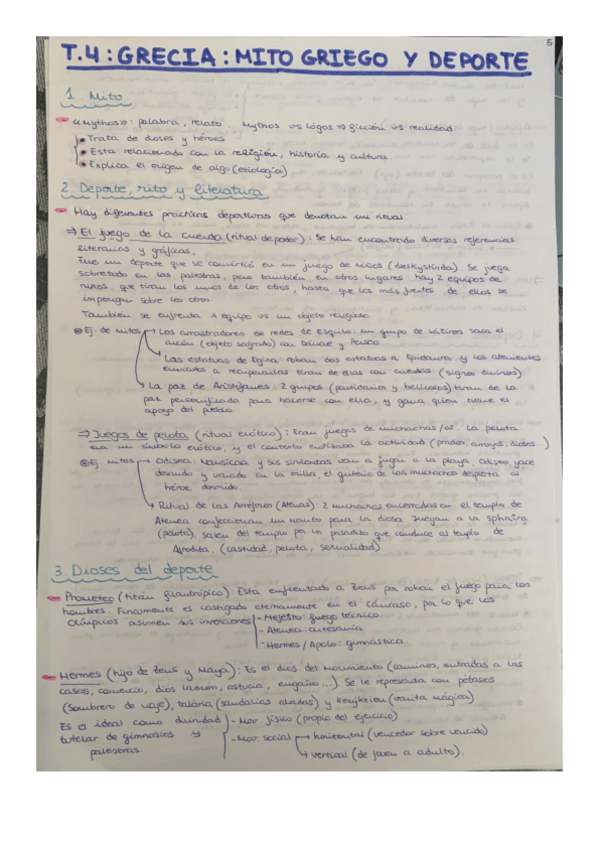 5
T.4: GRECIA: MITO GRIEGO Y DEPORTE
1. Mito
«Mythos»: palabra, relato. Mythos vs Logos => ficción vs realidad.
Trata de dioses y héroes
Está relacionado con la religión, historia y cultura.
Explica el origen de algo (etiología)
2. Deporte, rito y literatura
Hay diferentes prácticas deportivas que denotan un ritual.
=> El juego de la cuerda (ritual de poder): Se han encontrado diversas referencias
literarias y gráficas.
Fue un deporte que se convirtió en un juego de niños (dielkystinda). Se juega
sobretodo en las palestras, pero también en otros lugares: hay 2 equipos de
niños, que tiran los unos de los otros, hasta que los más fuertes de ellos se
impongan sobre los otros.
También se enfrenta 1 equipo vs un objeto religioso.
Ej. de mitos Los arrastradores de redes de Esquilo: un grupo de sátiros saca el
arcón (objeto sagrado) con Dánae y Perseo.
Las estatuas de Egina: roban dos estatuas a Epidauro y los atenienses
enviados a recuperarlas tiran de ellas con cuerdas (signos divinos)
La paz de Aristófanes: 2 grupos (partidarios y belicosos) tiran de la
paz personificada para hacerse con ella, y gana quien tiene el
apoyo del pueblo.
=> Juegos de pelota (ritual erótico): Eran juegos de muchachas/os. La pelota
era un símbolo erótico, y el contexto erotizaba la actividad (prados, arroyos, dioses...)
Ej. mitos Odisea: Nausícaa y sus sirvientas van a jugar a la playa. Odiseo yace
desnudo y varado en la orilla, el griterío de las muchachas despierta al
héroe dormido.
Ritual de las Arréforos (Atenas): 2 muchachas encerradas en el templo de
Atenea confeccionan un manto para la diosa. Juegan a la sphaira
(pelota), salen del templo por un pasadizo que conduce al templo de
Afrodita. (castidad, pelota, sexualidad)
3. Dioses del deporte
Prometeo (titán filantrópico): Está enfrentado a Zeus por robar el fuego para los
hombres. Finalmente es castigado eternamente en el Cáucaso, por lo que los
Olímpicos asumen sus invenciones - Hefesto: fuego técnico
- Atenea: artesanía
- Hermes/Apolo: gimnástica
Hermes (hijo de Zeus y Maya): Es el dios del movimiento (caminos, entradas a las
casas, comercio, dios ladrón, astucia, engaño...) Se le representa con pétasos
(sombrero de viaje), talária (sandalias aladas) y kerykeion (varita mágica)
Es el ideal como divinidad - Mov. físico (propio del ejercicio)
tutelar de gimnasios y - Mov. social horizontal (vencedor sobre vencido)
palestras. vertical (de joven a adulto).